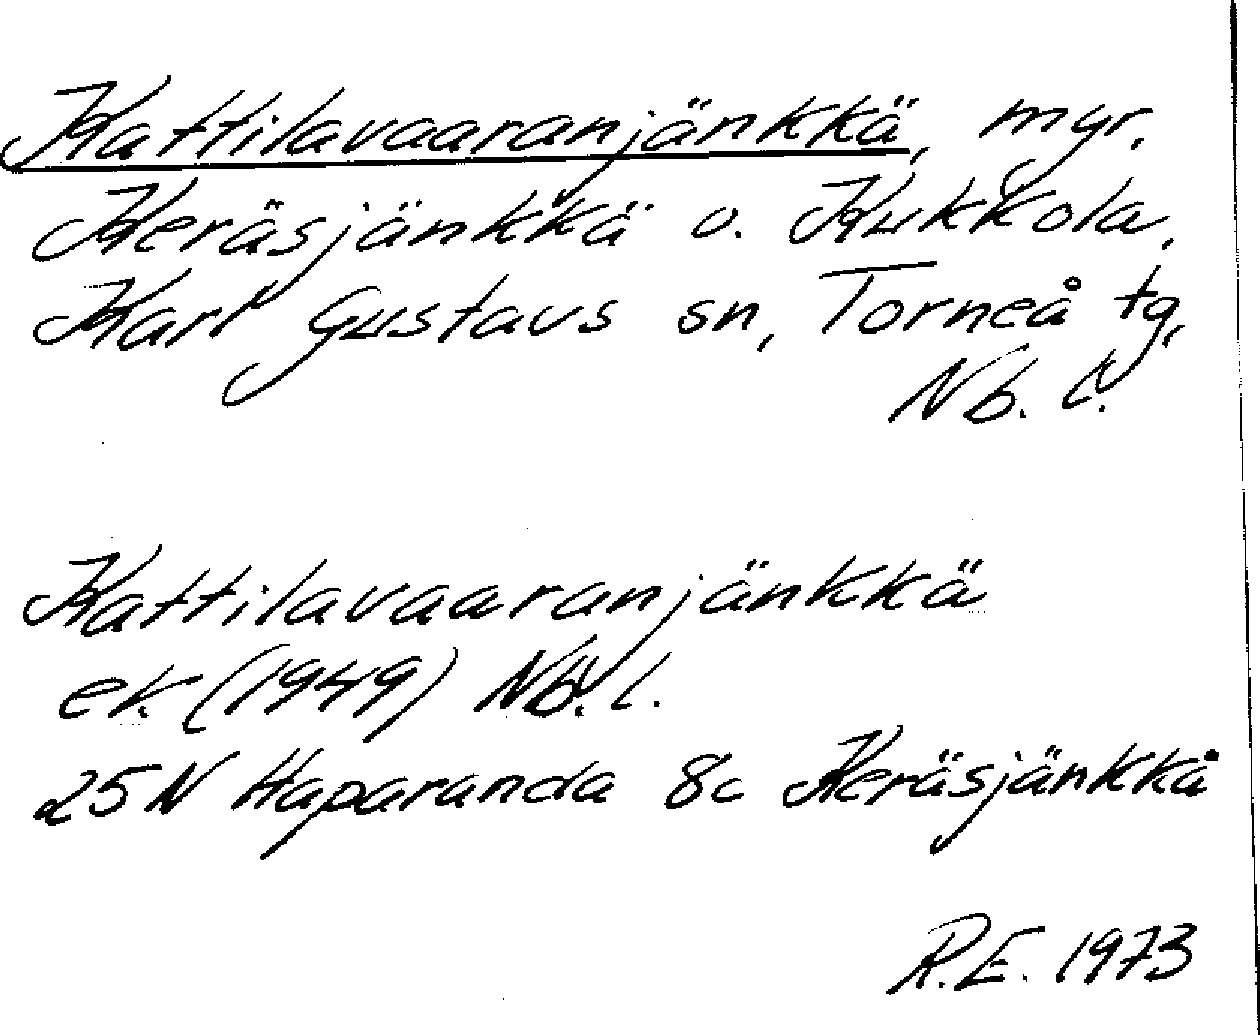 Kattilavaaranjänkkä, myr.
Keräsjänkkä o. Kukkola,
Karl Gustavs sn, Torneå tg,
Nb. l.
Kattilavaaranjänkkä
ek. (1949) Nb. l.
25N Haparanda 8c Keräsjänkkä
R.E. 1973